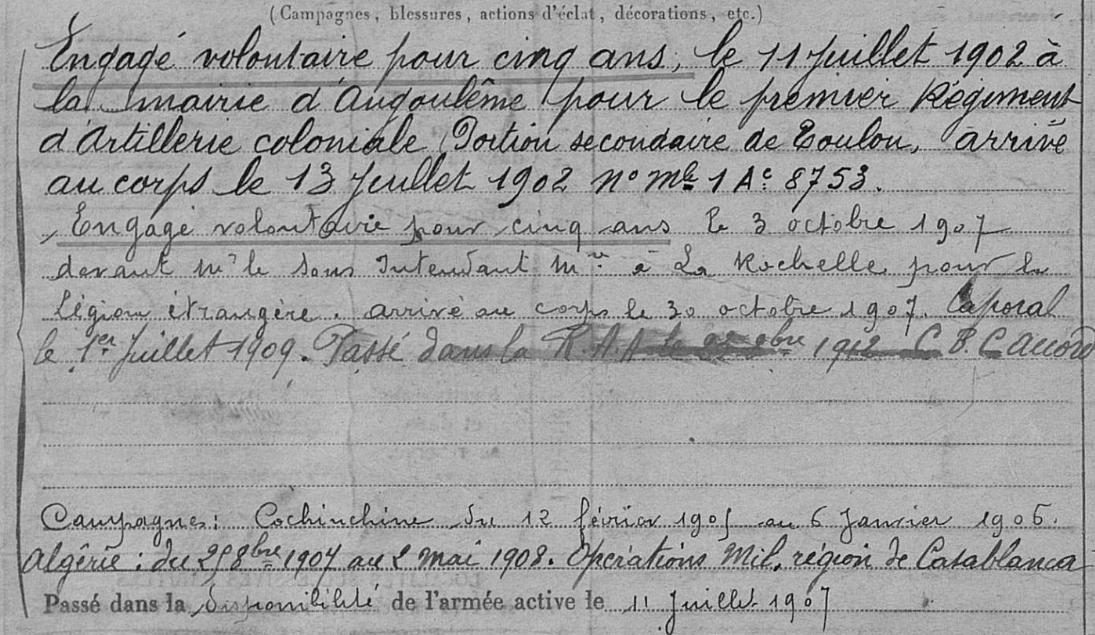 (Campagnes, blessures, actions d'éclat, décorations, etc.)
Engagé volontaire pour cinq ans, le 11 Juillet 1902 à
la mairie d'Angoulême pour le premier Régiment
d'Artillerie coloniale Portion secondaire de Toulon, arrivé
au corps le 13 Juillet 1902 No Mle 1 Ac 8753.
Engagé volontaire pour cinq ans le 3 octobre 1907
devant Mr le Sous Intendant Mre à La Rochelle pour la
légion étrangère. arrivé au corps le 30 octobre 1907. Caporal
le 1er Juillet 1909. Passé dans la R.A.A le 8bre 1912 C.B.C accord
Campagnes: Cochinchine du 12 février 1905 au 6 Janvier 1906.
Algérie: du 8bre 1907 au 2 Mai 1908. Opérations Mil. région de Casablanca
Passé dans la disponibilité de l'armée active le 11 Juillet 1907